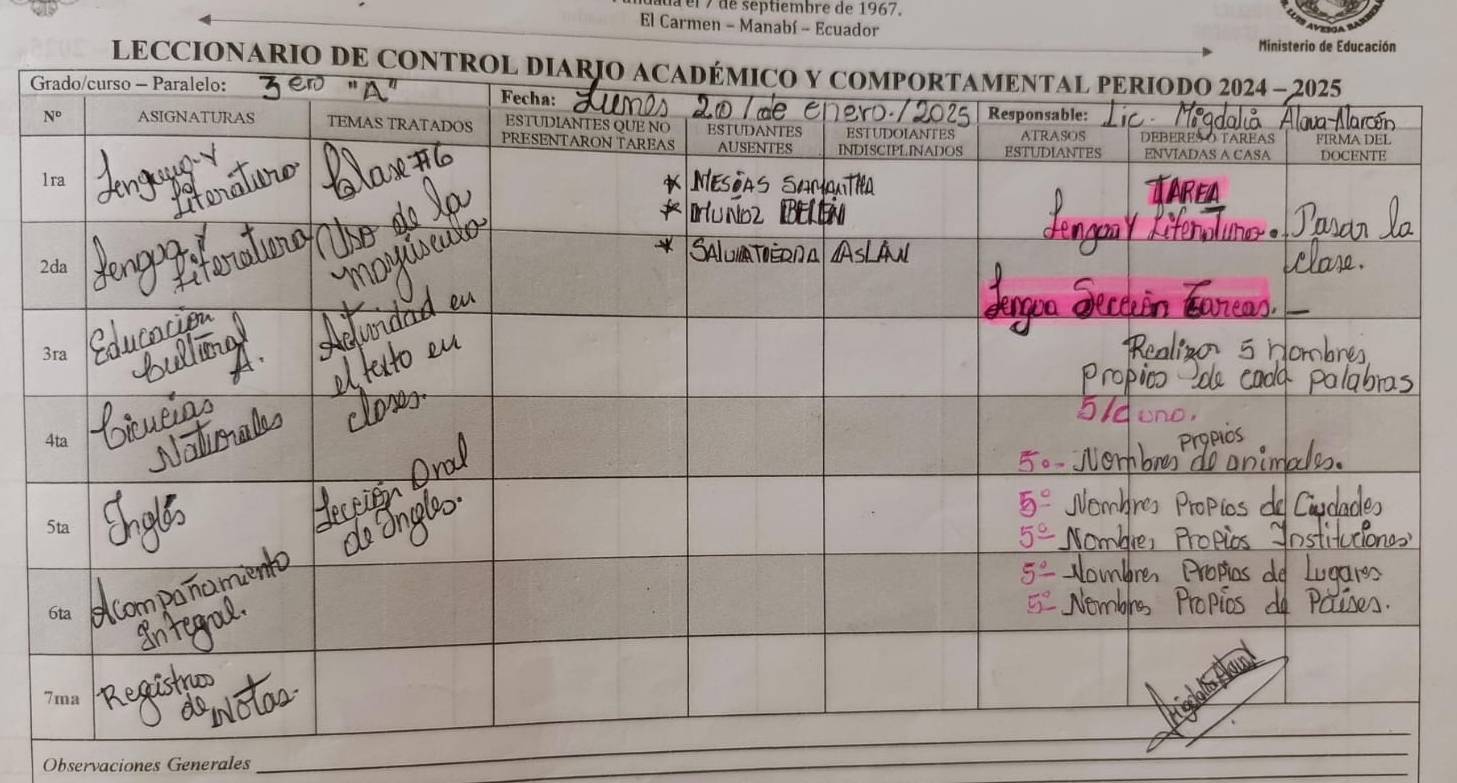 de septiembre de 1967.
El Carmen - Manabí - Ecuador
Ministerio de Educación
LECCIONARIO DE CONTROL DIARIO ACADÉMICO Y COMPORTAMENTAL PERIODO 2024 – 2025
Grado/curso – Paralelo: 3ero "A" Fecha: Lunes 20/de enero./2025 Responsable: Lic. Migdalia Alava-Alarcón
Nº ASIGNATURAS TEMAS TRATADOS ESTUDIANTES QUE NO PRESENTARON TAREAS ESTUDANTES AUSENTES ESTUDOIANTES INDISCIPLINADOS ATRASOS ESTUDIANTES DEBERES O TAREAS ENVIADAS A CASA FIRMA DEL DOCENTE
1ra Lengua y Literatura Clase #6
* MESÍAS SAMANTHA
* MUÑOZ BELÉN
TAREA
Lengua y Literatura. Pasar la
clase.
2da Lengua y Literatura Uso de la mayúscula
* SALVATIERRA ASLAN
Lengua Sección Tareas. —
3ra Educación Cultural A. Actividad en
el texto en
clases.
Realizar 5 nombres
propios de cada palabras
5/c uno.
4ta Ciencias Naturales
5º- Nombres propios de animales.
5ta Inglés Lección Oral de Ingles.
5º Nombres Propios de Ciudades
5º Nombres Propios Instituciones
6ta Acompañamiento Integral.
5º Nombres Propios de Lugares
5º Nombres Propios de Países.
7ma Registros de Notas.
Migdalia Alava
Observaciones Generales